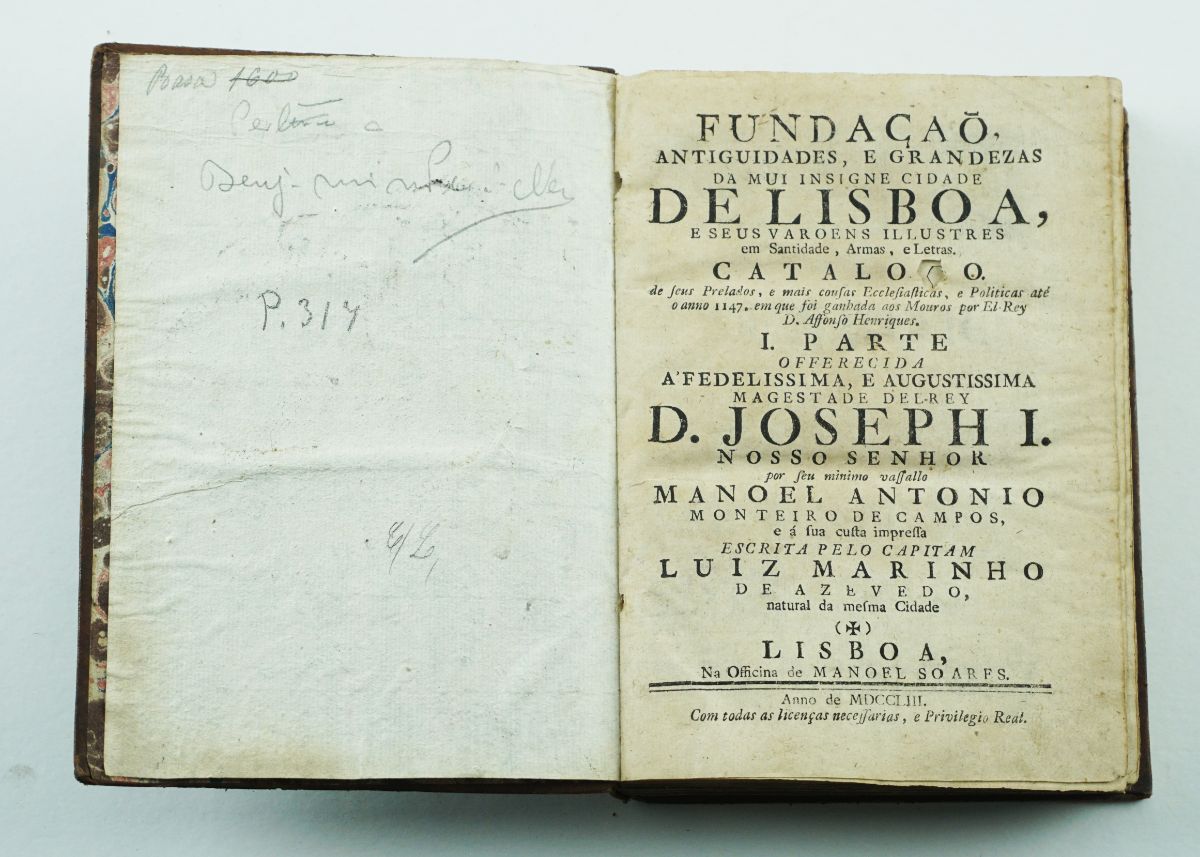 1600
P. 314
FUNDAÇAÕ,
ANTIGUIDADES, E GRANDEZAS
DA MUI INSIGNE CIDADE
DE LISBOA,
E SEUS VAROENS ILLUSTRES
em Santidade, Armas, e Letras.
CATALOGO.
de ſeus Prelados, e mais couſas Eccleſiaſticas, e Politicas até
o anno 1147. em que foi ganhada aos Mouros por El-Rey
D. Affonſo Henriques.
I. PARTE
OFFERECIDA
A' FEDELISSIMA, E AUGUSTISSIMA
MAGESTADE DEL-REY
D. JOSEPH I.
NOSSO SENHOR
por ſeu minimo vaſſallo
MANOEL ANTONIO
MONTEIRO DE CAMPOS,
e á ſua cuſta impreſſa
ESCRITA PELO CAPITAM
LUIZ MARINHO
DE AZEVEDO,
natural da meſma Cidade
(✠)
LISBOA,
Na Officina de MANOEL SOARES.
Anno de MDCCLIII.
Com todas as licenças neceſſarias, e Privilegio Real.